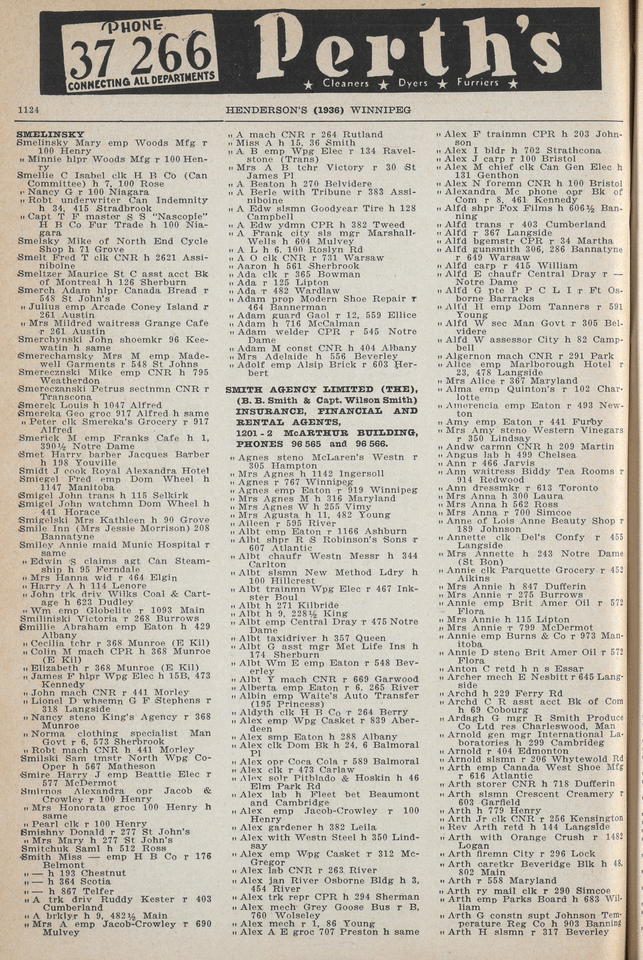 PHONE
37 266
CONNECTING ALL DEPARTMENTS
Perth's
★ Cleaners ★ Dyers ★ Furriers ★
1124
HENDERSON'S (1936) WINNIPEG
SMELINSKY
Smelinsky Mary emp Woods Mfg r
100 Henry
" Minnie hlpr Woods Mfg r 100 Hen-
ry
Smellie C Isabel clk H B Co (Can
Committee) h 7, 100 Rose
" Nancy G r 100 Niagara
" Robt underwriter Can Indemnity
h 34, 415 Stradbrook
" Capt T F master S S "Nascopie"
H B Co Fur Trade h 100 Nia-
gara
Smelsky Mike of North End Cycle
Shop h 71 Grove
Smelt Fred T clk CNR h 2621 Assi-
niboine
Smeltzer Maurice St C asst acct Bk
of Montreal h 126 Sherburn
Smerch Adam hlpr Canada Bread r
548 St John's
" Julius emp Arcade Coney Island r
261 Austin
" Mrs Mildred waitress Grange Cafe
r 261 Austin
Smerchynski John shoemkr 96 Kee-
watin h same
Smerechamsky Mrs M emp Made-
well Garments r 548 St Johns
Smerecznski Mike emp CNR h 795
Weatherdon
Smereczanski Petrus sectnmn CNR r
Transcona
Smerek Louis h 1047 Alfred
Smereka Geo groc 917 Alfred h same
" Peter clk Smereka's Grocery r 917
Alfred
Smerick M emp Franks Cafe h 1,
390½ Notre Dame
Smet Harry barber Jacques Barber
h 198 Youville
Smidt J cook Royal Alexandra Hotel
Smigel Fred emp Dom Wheel h
1147 Manitoba
Smigel John trans h 115 Selkirk
Smigel John watchmn Dom Wheel h
441 Horace
Smigelski Mrs Kathleen h 90 Grove
Smile Inn (Mrs Jessie Morrison) 208
Bannatyne
Smiley Annie maid Munic Hospital r
same
" Edwin S claims agt Can Steam-
ship h 95 Ferndale
" Mrs Hanna wid r 464 Elgin
" Harry A h 114 Lenore
" John trk driv Wilks Coal & Cart-
age h 623 Dudley
" Wm emp Globelite r 1093 Main
Smiliniski Victoria r 268 Burrows
Smillie Abraham emp Eaton h 429
Albany
" Cecilia tchr r 368 Munroe (E Kil)
" Colin M mach CPR h 368 Munroe
(E Kil)
" Elizabeth r 368 Munroe (E Kil)
" James F hlpr Wpg Elec h 15B, 473
Kennedy
" John mach CNR r 441 Morley
" Lionel D whsemn G F Stephens r
318 Langside
" Nancy steno King's Agency r 368
Munroe
" Norma clothing specialist Man
Govt r 6, 573 Sherbrook
" Robt mach CNR h 441 Morley
Smilski Sam timstr North Wpg Co-
Oper h 567 Matheson
Smire Harry J emp Beattie Elec r
577 McDermot
Smirnos Alexandra opr Jacob &
Crowley r 100 Henry
" Mrs Honorata groc 100 Henry h
same
" Pearl clk r 100 Henry
Smishny Donald r 277 St John's
" Mrs Mary h 277 St John's
Smitchuk Saml h 512 Ross
Smith Miss — emp H B Co r 176
Belmont
" — h 193 Chestnut
" — h 364 Scotia
" — h 867 Telfer
" A trk driv Ruddy Kester r 403
Cumberland
" A brklyr h 9, 482½ Main
" Mrs A emp Jacob-Crowley r 690
Mulvey
" A mach CNR r 264 Rutland
" Miss A h 15, 36 Smith
" A B emp Wpg Elec r 134 Ravel-
stone (Trans)
" Mrs A B tchr Victory r 30 St
James Pl
" A Beaton h 270 Belvidere
" A Berle with Tribune r 383 Assi-
niboine
" A Edw slsmn Goodyear Tire h 128
Campbell
" A Edw ydmn CPR h 382 Tweed
" A Frank city sls mgr Marshall-
Wells h 604 Mulvey
" A L h 6, 100 Roslyn Rd
" A O clk CNR r 731 Warsaw
" Aaron h 561 Sherbrook
" Ada clk r 365 Bowman
" Ada r 125 Lipton
" Ada r 482 Wardlaw
" Adam prop Modern Shoe Repair r
464 Bannerman
" Adam guard Gaol r 12, 559 Ellice
" Adam h 716 McCalman
" Adam welder CPR r 545 Notre
Dame
" Adam M const CNR h 404 Albany
" Mrs Adelaide h 556 Beverley
" Adolf emp Alsip Brick r 603 Her-
bert
SMITH AGENCY LIMITED (THE),
(B. B. Smith & Capt. Wilson Smith)
INSURANCE, FINANCIAL AND
RENTAL AGENTS,
1201-2 McARTHUR BUILDING,
PHONES 96 565 and 96 566.
" Agnes steno McLaren's Westn r
305 Hampton
" Mrs Agnes h 1142 Ingersoll
" Agnes r 767 Winnipeg
" Agnes emp Eaton r 919 Winnipeg
" Mrs Agnes M h 316 Maryland
" Mrs Agnes W h 255 Vimy
" Mrs Agusta h 11, 482 Young
" Aileen r 595 River
" Albt emp Eaton r 1166 Ashburn
" Albt shpr R S Robinson's Sons r
607 Atlantic
" Albt chaufr Westn Messr h 344
Carlton
" Albt slsmn New Method Ldry h
100 Hillcrest
" Albt trainmn Wpg Elec r 467 Ink-
ster Boul
" Albt h 271 Kilbride
" Albt h 9, 228½ King
" Albt emp Central Dray r 475 Notre
Dame
" Albt taxidriver h 357 Queen
" Albt G asst mgr Met Life Ins h
174 Sherburn
" Albt Wm E emp Eaton r 548 Bev-
erley
" Albt Y mach CNR r 669 Garwood
" Alberta emp Eaton r 6, 265 River
" Albin emp Waite's Auto Transfer
(195 Princess)
" Aldyth clk H B Co r 264 Berry
" Alex emp Wpg Casket r 839 Aber-
deen
" Alex smp Eaton h 288 Albany
" Alex clk Dom Bk h 24, 6 Balmoral
Pl
" Alex opr Coca Cola r 589 Balmoral
" Alex clk r 473 Carlaw
" Alex solr Pitblado & Hoskin h 46
Elm Park Rd
" Alex lab h Fleet bet Beaumont
and Cambridge
" Alex emp Jacob-Crowley r 100
Henry
" Alex gardener h 382 Leila
" Alex with Westn Steel h 350 Lind-
say
" Alex emp Wpg Casket r 312 Mc-
Gregor
" Alex lab CNR r 263 River
" Alex jan River Osborne Bldg h 3,
454 River
" Alex trk repr CPR h 294 Sherman
" Alex mech Grey Goose Bus r B,
760 Wolseley
" Alex mech r 1, 86 Young
" Alex A E groc 707 Preston h same
" Alex F trainmn CPR h 203 John-
son
" Alex I bldr h 702 Strathcona
" Alex J carp r 100 Bristol
" Alex M chief clk Can Gen Elec h
131 Genthon
" Alex N foremn CNR h 100 Bristol
" Alexandra Mc phone opr Bk of
Com r 8, 461 Kennedy
" Alfd shpr Fox Films h 606½ Ban-
ning
" Alfd trans r 403 Cumberland
" Alfd r 367 Langside
" Alfd bgemstr CPR r 34 Martha
" Alfd gunsmith 306, 286 Bannatyne
r 649 Warsaw
" Alfd carp r 415 William
" Alfd E chaufr Central Dray r —
Notre Dame
" Alfd G pte P P C L I r Ft Os-
borne Barracks
" Alfd H emp Dom Tanners r 591
Young
" Alfd W sec Man Govt r 305 Bel-
videre
" Alfd W assessor City h 82 Camp-
bell
" Algernon mach CNR r 291 Park
" Alice emp Marlborough Hotel r
23, 478 Langside
" Mrs Alice r 367 Maryland
" Alma emp Quinton's r 102 Char-
lotte
" Amerencia emp Eaton r 493 New-
ton
" Amy emp Eaton r 441 Furby
" Mrs Amy steno Western Vinegars
r 350 Lindsay
" Andw carmn CNR h 209 Martin
" Angus lab h 499 Chelsea
" Ann r 466 Jarvis
" Ann waitress Biddy Tea Rooms r
914 Redwood
" Ann dressmkr r 613 Toronto
" Mrs Anna h 300 Laura
" Mrs Anna h 562 Ross
" Mrs Anna r 700 Simcoe
" Anne of Lois Anne Beauty Shop r
189 Johnson
" Annette clk Del's Confy r 455
Langside
" Mrs Annette h 243 Notre Dame
(St Bon)
" Annie clk Parquette Grocery r 452
Aikins
" Mrs Annie h 847 Dufferin
" Mrs Annie r 275 Burrows
" Annie emp Brit Amer Oil r 572
Flora
" Mrs Annie h 115 Lipton
" Mrs Annie r 799 McDermot
" Annie emp Burns & Co r 973 Man-
itoba
" Annie D steno Brit Amer Oil r 572
Flora
" Anton C retd h n s Essar
" Archer mech E Nesbitt r 645 Lang-
side
" Archd h 229 Ferry Rd
" Archd C R asst acct Bk of Com
h 69 Cobourg
" Ardagh G mgr R Smith Produce
Co Ltd res Charleswood, Man
" Arnold gen mgr International La-
boratories h 299 Cambrideg
" Arnold r 404 Edmonton
" Arnold slsmn r 206 Whytewold Rd
" Arth emp Canada West Shoe Mfg
r 616 Atlantic
" Arth storer CNR h 718 Dufferin
" Arth slsmn Crescent Creamery r
603 Garfield
" Arth h 779 Henry
" Arth Jr clk CNR r 256 Kensington
" Rev Arth retd h 144 Langside
" Arth with Orange Crush r 1482
Logan
" Arth firemn City r 296 Lock
" Arth caretkr Beveridge Blk h 48,
802 Main
" Arth r 558 Maryland
" Arth ry mail clk r 290 Simcoe
" Arth emp Parks Board h 683 Wil-
liam
" Arth G constn supt Johnson Tem-
perature Reg Co h 903 Banning
" Arth H slsmn r 317 Beverley